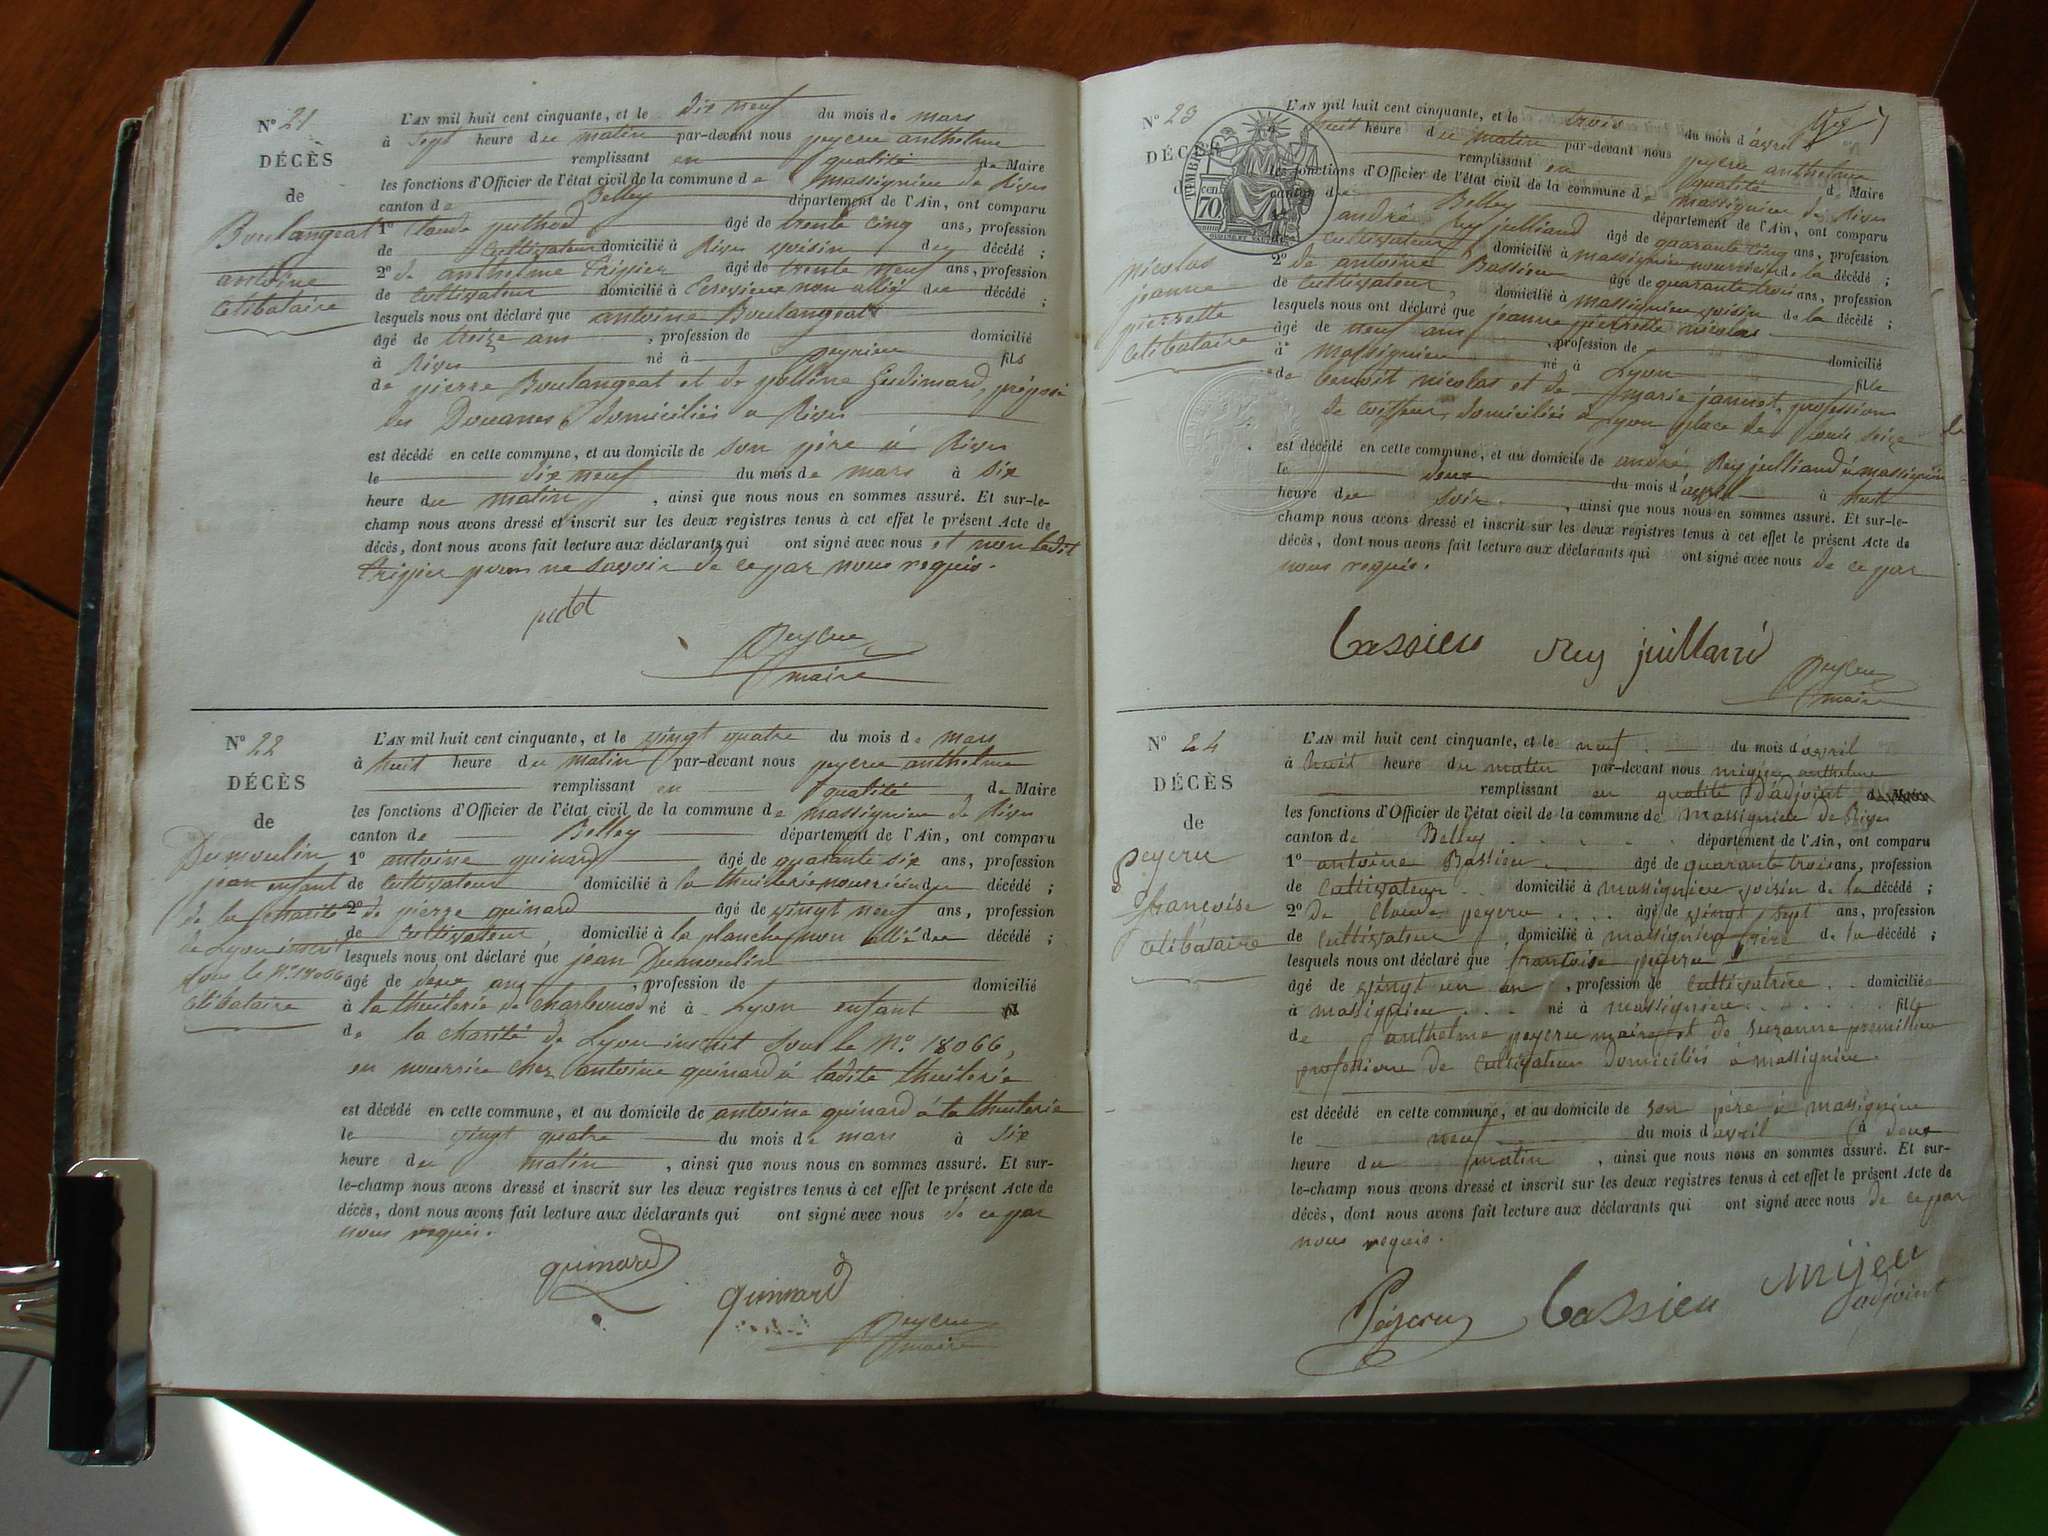 N° 21
DÉCÈS
de
Boulangeat
antoine
Celibataire
L'AN mil huit cent cinquante, et le dix neuf du mois de mars
à sept heure du matin par-devant nous peyeru anthelme
remplissant en qualité de Maire
les fonctions d'Officier de l'état civil de la commune de massignieu de Rives
canton de Belley département de l'Ain, ont comparu
1° Claude puthod âgé de trente cinq ans, profession
de Cultivateur domicilié à Rives voisin du décédé ;
2° de anthelme Tripier âgé de trente neuf ans, profession
de Cultivateur domicilié à non allié du décédé ;
lesquels nous ont déclaré que antoine Boulangeat
âgé de treize ans, profession de domicilié
à Rives né à peyrieu fils
de pierre Boulangeat et de préposé
des Douanes domiciliés a Rives
est décédé en cette commune, et au domicile de son père à Rives
le dix neuf du mois de mars à six
heure du matin, ainsi que nous nous en sommes assuré. Et sur-le-
champ nous avons dressé et inscrit sur les deux registres tenus à cet effet le présent Acte de
décès, dont nous avons fait lecture aux déclarants qui ont signé avec nous et non ledit
Tripier pour ne savoir de ce par nous requis.
Peyeru
maire
N° 22
DÉCÈS
de
Dumoulin
jean enfant
de la charité
de Lyon inscrit
sous le N° 18066
Celibataire
L'AN mil huit cent cinquante, et le vingt quatre du mois de mars
à huit heure du matin par-devant nous peyeru anthelme
remplissant en qualité de Maire
les fonctions d'Officier de l'état civil de la commune de massignieu de Rives
canton de Belley département de l'Ain, ont comparu
1° antoine quinard âgé de quarante six ans, profession
de Cultivateur domicilié à la thuilerie nourricier du décédé ;
2° de pierre quinard âgé de vingt neuf ans, profession
de Cultivateur domicilié à la planche non allié du décédé ;
lesquels nous ont déclaré que jean Dumoulin
âgé de deux ans, profession de domicilié
à la thuilerie de charbonod né à Lyon enfant
de la charité de Lyon inscrit sous le N° 18066,
en nourrice chez antoine quinard à ladite thuilerie
est décédé en cette commune, et au domicile de antoine quinard à la thuilerie
le vingt quatre du mois de mars à six
heure du matin, ainsi que nous nous en sommes assuré. Et sur-
le-champ nous avons dressé et inscrit sur les deux registres tenus à cet effet le présent Acte de
décès, dont nous avons fait lecture aux déclarants qui ont signé avec nous de ce par
nous requis.
quinard
quinard
Peyeru
maire
N° 23
DÉCÈS
TIMBRE
cen
70
nicolas
jeanne
pierrette
Celibataire
L'AN mil huit cent cinquante, et le trois du mois d'avril
à huit heure du matin par-devant nous peyeru anthelme
remplissant en qualité de Maire
les fonctions d'Officier de l'état civil de la commune de massignieu de Rives
canton de Belley département de l'Ain, ont comparu
andré Rey juilliand âgé de quarante cinq ans, profession
Cultivateur domicilié à massignieu nourricier de la décédé ;
2° de antoine Bassieu âgé de quarante trois ans, profession
de Cultivateur, domicilié à massignieu voisin de la décédé ;
lesquels nous ont déclaré que jeanne pierrette nicolas
âgé de neuf ans, profession de domicilié
à massignieu né à Lyon fille
de Benoit nicolas et de marie jannot, profession
de Coiffeur, domiciliés à Lyon place de Louis seize
est décédé en cette commune, et au domicile de andré Rey juilliand à massignieu
le deux du mois d'avril à huit
heure du soir, ainsi que nous nous en sommes assuré. Et sur-le-
champ nous avons dressé et inscrit sur les deux registres tenus à cet effet le présent Acte de
décès, dont nous avons fait lecture aux déclarants qui ont signé avec nous de ce par
nous requis.
bassieu Rey juilland
Peyeru
maire
N° 24
DÉCÈS
de
Peyeru
françoise
Celibataire
L'AN mil huit cent cinquante, et le neuf du mois d'avril
à huit heure du matin par-devant nous migieu anthelme
remplissant en qualité d'adjoint de Maire
les fonctions d'Officier de l'état civil de la commune de massignieu de Rives
canton de Belley département de l'Ain, ont comparu
1° antoine Bassieu âgé de quarante trois ans, profession
de Cultivateur domicilié à massignieu voisin de la décédé ;
2° de Claude peyeru âgé de vingt sept ans, profession
de Cultivateur domicilié à massignieu frère de la décédé ;
lesquels nous ont déclaré que françoise peyeru
âgé de vingt un an, profession de Cultivatrice domiciliée
à massignieu né à massignieu fille
de anthelme peyeru maire et de Suzanne premillieu
professions de Cultivateur domiciliés à massignieu
est décédé en cette commune, et au domicile de son père à massignieu
le neuf du mois d'avril à deux
heure du matin, ainsi que nous nous en sommes assuré. Et sur-
le-champ nous avons dressé et inscrit sur les deux registres tenus à cet effet le présent Acte de
décès, dont nous avons fait lecture aux déclarants qui ont signé avec nous de ce par
nous requis.
Peyeru bassieu Mijeu
adjoint